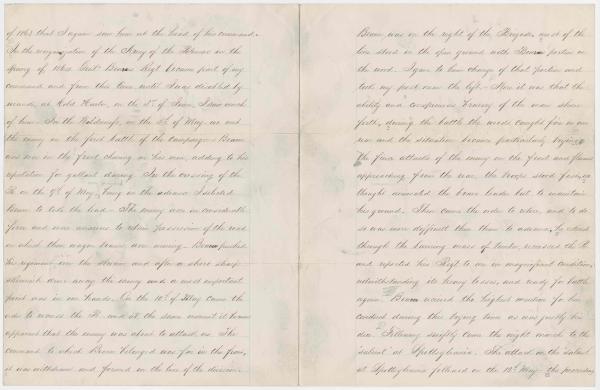 of 1863 that I again saw him at the head of his command.
In the reorganization of the Army of the Potomac in the
spring of 1864 Genl. Beaver's Regt became part of my
command and from this time until I was disabled by
wounds, at Cold Harbor, on the 2d of June, I saw much
of him. In the Wilderness, on the 5th of May, we met
the enemy in the first battle of the campaign. Beaver
was seen in the front cheering on his men, adding to his
reputation for gallant daring. In the crossing of the
Po on the 9th of May, being in the advance I selected
Beaver to take the lead. The enemy was in considerable
force and was anxious to retain possession of the road
on which their wagon trains were moving. Beaver pushed
his regiment over the stream and after a short sharp
skirmish drove away the enemy and a most important
point was in our hands. On the 10th of May came the
order to recross the Po and at the same moment it became
apparent that the enemy was about to attack us. The
command to which Beaver belonged was far in the front,
it was withdrawn and formed on the line of the division
Beaver was on the right of the Brigade, most of the
line stood in the open ground with Beaver's portion in
the wood. I gave to him charge of that portion and
took my post near the left. Here it was that the
ability and conspicuous bravery of the man shone
forth, during the battle the woods caught fire in our
rear and the situation became particularly trying.
The fierce attacks of the enemy on the front and flames
approaching from the rear, the troops stood facing
thought animated the brave leader but to maintain
his ground. Then came the order to retire, and to do
so was more difficult than to advance, he retired
through the burning mass of timber, recrossed the Po
and reported his Regt to me in magnificent condition,
notwithstanding its heavy losses, and ready for battle
again. Beaver received the highest mention for his
conduct during this trying time as was justly his
due. Following swiftly came the night march to the
salient at Spottsylvania. The attack on the salient
at Spottsylvania followed on the 12th May. the preceding